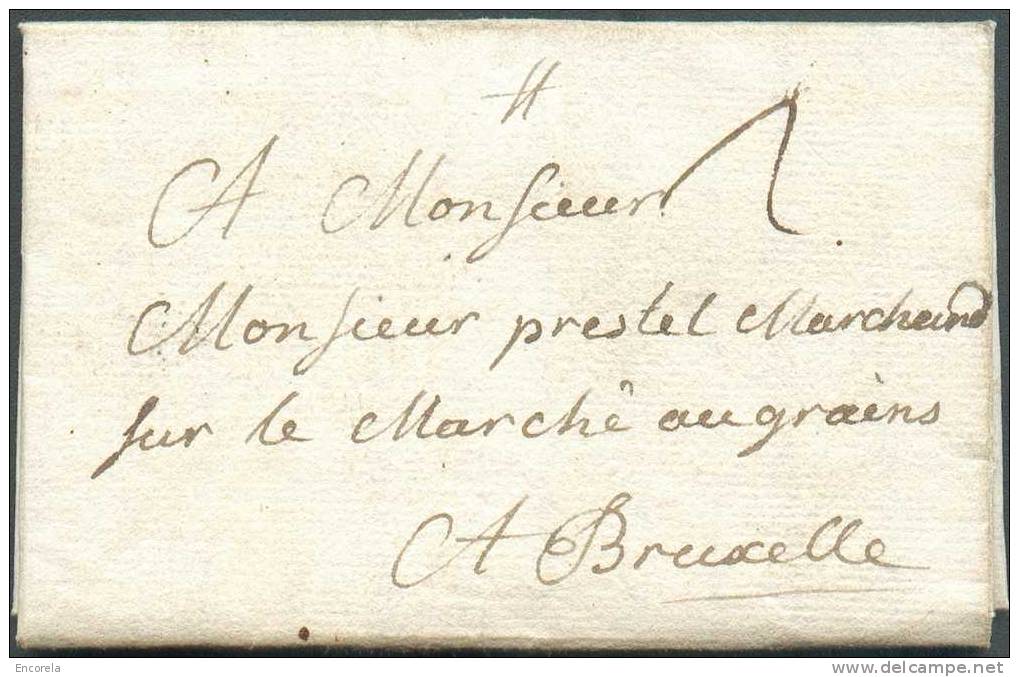 A Monsieur
Monsieur prestel Marchand
sur le Marchê au grains
A Bruxelle
Encorela
delcampe.net